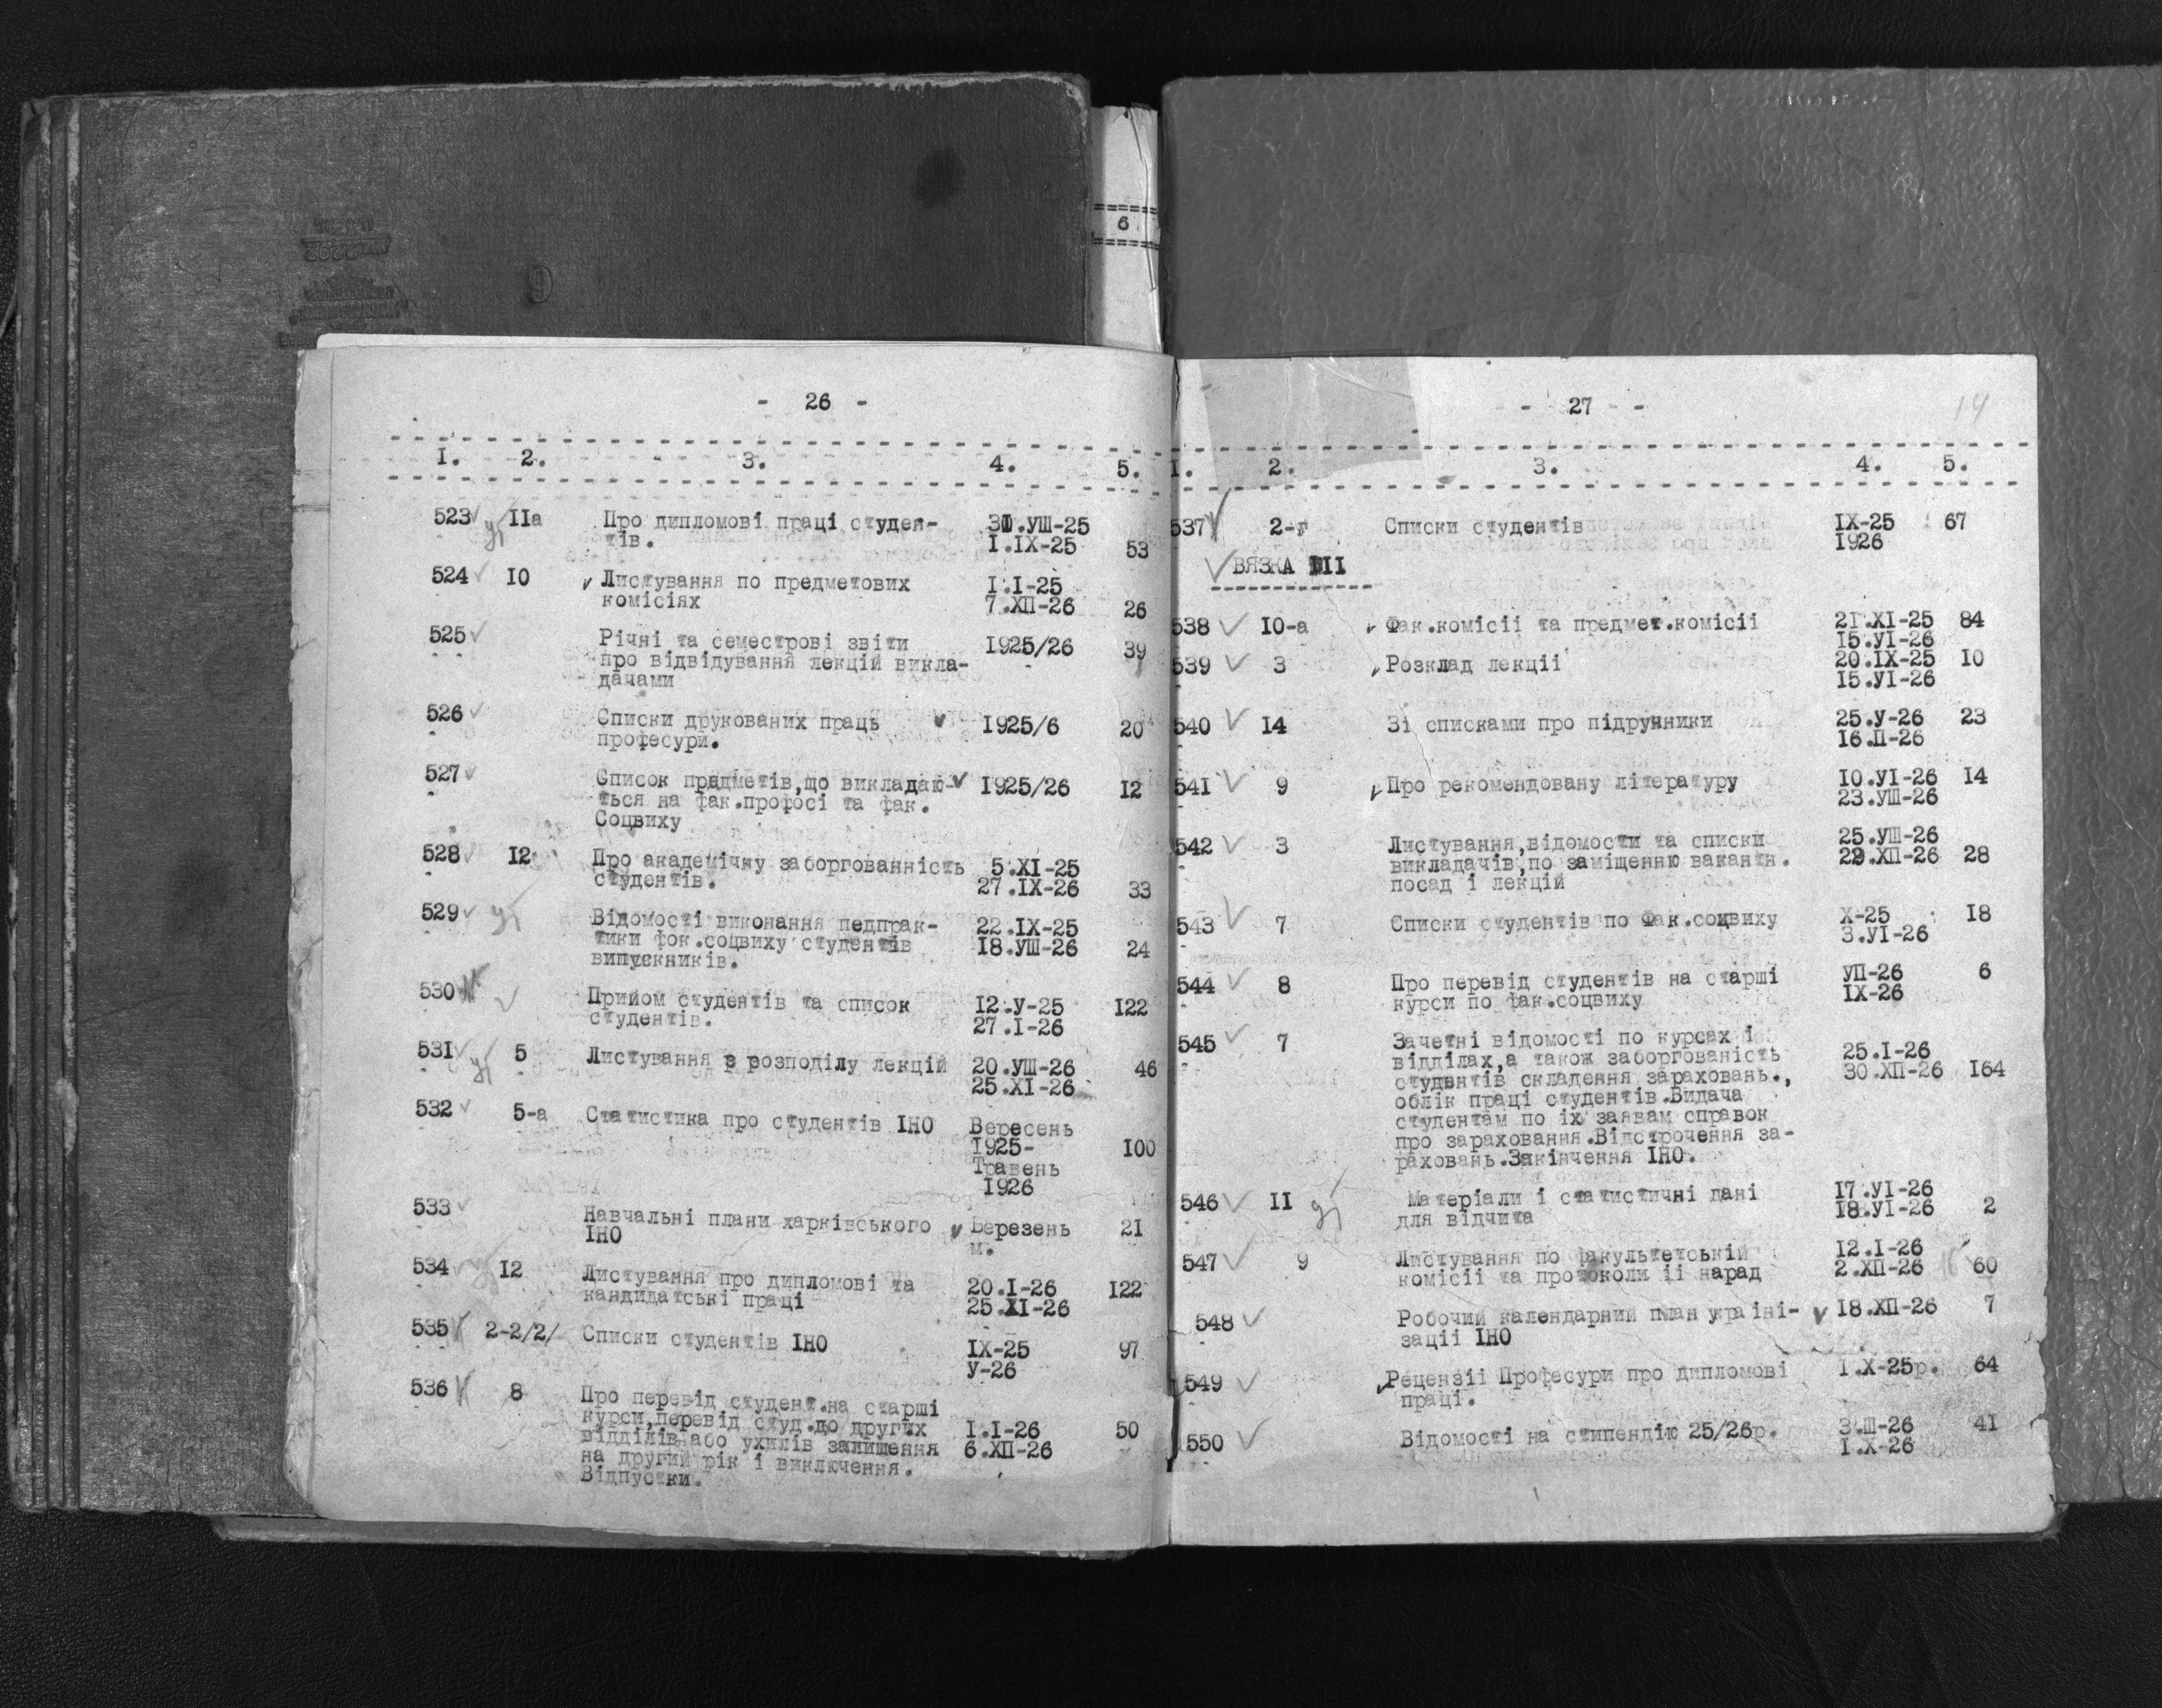 6
- 26 -
I. 2. 3. 4. 5.
523 IIа Про дипломові праці студен- 30.УШ-25
тів. I.IX-25 53
524 IO Листування по предметових I.I-25
комісіях 7.ХП-26 26
525 Річні та семестрові звіти 1925/26 39
про відвідування лекцій викла-
дачами
526 Списки друкованих праць 1925/6 20
професури.
527 Список прдметів,що викладаю- 1925/26 I2
ться на фак.профосі та фак.
Соцвиху
528 I2 Про академічну заборгованність 5.XI-25
студентів. 27.IX-26 33
529 Відомості виконання педпрак- 22.IX-25
тики фок.соцвиху студентів I8.УШ-26 24
випускників.
530 Прийом студентів та список I2.У-25 I22
студентів. 27.I-26
531 5 Листування з розподілу лекцій 20.УШ-26 46
25.XI-26
532 5-а Статистика про студентів ІНО Вересень
1925- I00
Травень
1926
533 Навчальні плани харківського Березень 21
ІНО м.
534 I2 Листування про дипломові та 20.I-26 I22
кандидатські праці 25.XI-26
535 2-2/2/ Списки студентів ІНО IX-25 97
У-26
536 8 Про перевід студент.на старші
курси,перевід студ.до других I.I-26 50
відділів або ухилів залишення 6.ХП-26
на другий рік і виключення.
Відпустки.
- 27 - 14
I. 2. 3. 4. 5.
537 2-г Списки студентів IX-25 67
1926
ВЯЗКА III
538 IO-а Фак.комісіі та предмет.комісіі 2I.XI-25 84
I5.УI-26
539 3 Розклад лекціі 20.IX-25 IO
I5.УI-26
540 I4 Зі списками про підручники 25.У-26 23
I6.П-26
541 9 Про рекомендовану літературу IO.УI-26 I4
23.УШ-26
542 3 Листування,відомости та списки 25.УШ-26
викладачів,по заміщенню вакантн. 29.ХП-26 28
посад і лекцій
543 7 Списки студентів по Фак.соцвиху X-25 I8
3.УI-26
544 8 Про перевід студентів на старші УП-26 6
курси по фак.соцвиху IX-26
545 7 Зачетні відомості по курсах і
відділах,а також заборгованість 25.I-26
студентів складення зараховань., 30.ХП-26 I64
облік праці студентів.Видача
студентам по іх заявам справок
про зараховання.Відстрочення за-
раховань.Закінчення ІНО.
546 II Матеріали і статистичні дані I7.УI-26
для відчита I8.УI-26 2
547 9 Листування по факультетській I2.I-26
комісіі та протоколи іі нарад 2.ХП-26 60
548 Робочий календарний план украіні- I8.ХП-26 7
заціі ІНО
549 Рецензіі Професури про дипломові I.X-25р. 64
праці.
550 Відомості на стипендію 25/26р. 3.Ш-26 41
I.X-26